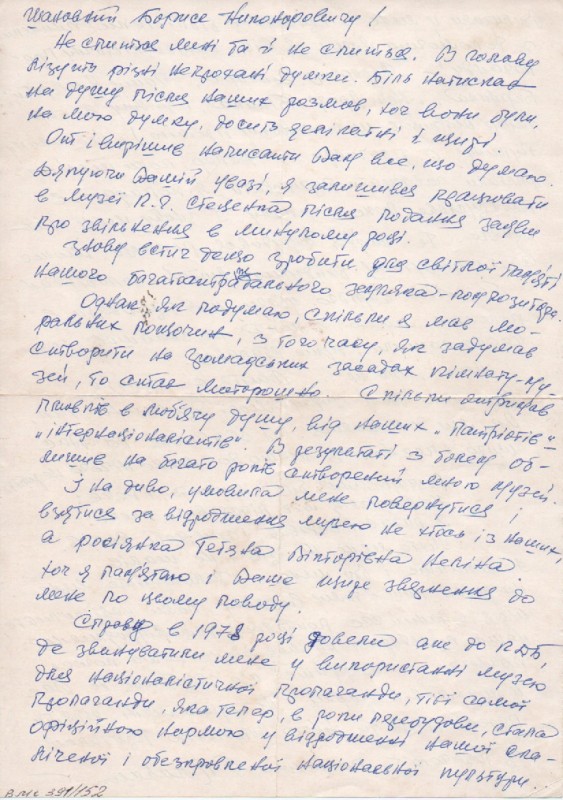 Шановний Борисе Никоноровичу!
Не спиться мені та й не спиться. В голову
лізуть різні непрохані думки. Біль натискає
на душу після наших розмов, хоч вони були,
на мою думку, досить делікатні і щирі.
От і вирішив написати Вам все, що думаю.
Дякуючи Вашій увазі, я залишився працювати
в музеї К.Г. Стеценка після подання заяви
про звільнення в минулому році.
Знову встиг дещо зробити для світлої пам'яті
нашого багатостраждального земляка-композитора.
Однак, як подумаю, скільки я мав мо-
ральних поштовхів, з того часу, як задумав
створити на громадських засадах кімнату-му-
зей, то стає моторошно. Скільки отримав
плювків в люблячу душу, від наших "патріотів"
"інтернаціоналістів". В результаті з болем об-
лишив на багато років створений мною музей.
І на диво, умовила мене повернутися і
взятися за відродження музею не хтось із наших,
а росіянка Тетяна Вікторівна
хоч я пам'ятаю і Ваше щире звернення до
мене по цьому поводу.
Справу в 1978 році довели аж до КДБ,
де звинуватили мене у використанні музею
для націоналістичної пропаганди, тієї самої
пропаганди, яка тепер, в роки перебудови, стала
офіційною нормою у відродженні нашої ска-
ліченої і обезкровленої національної культури...
ВМС 391/152